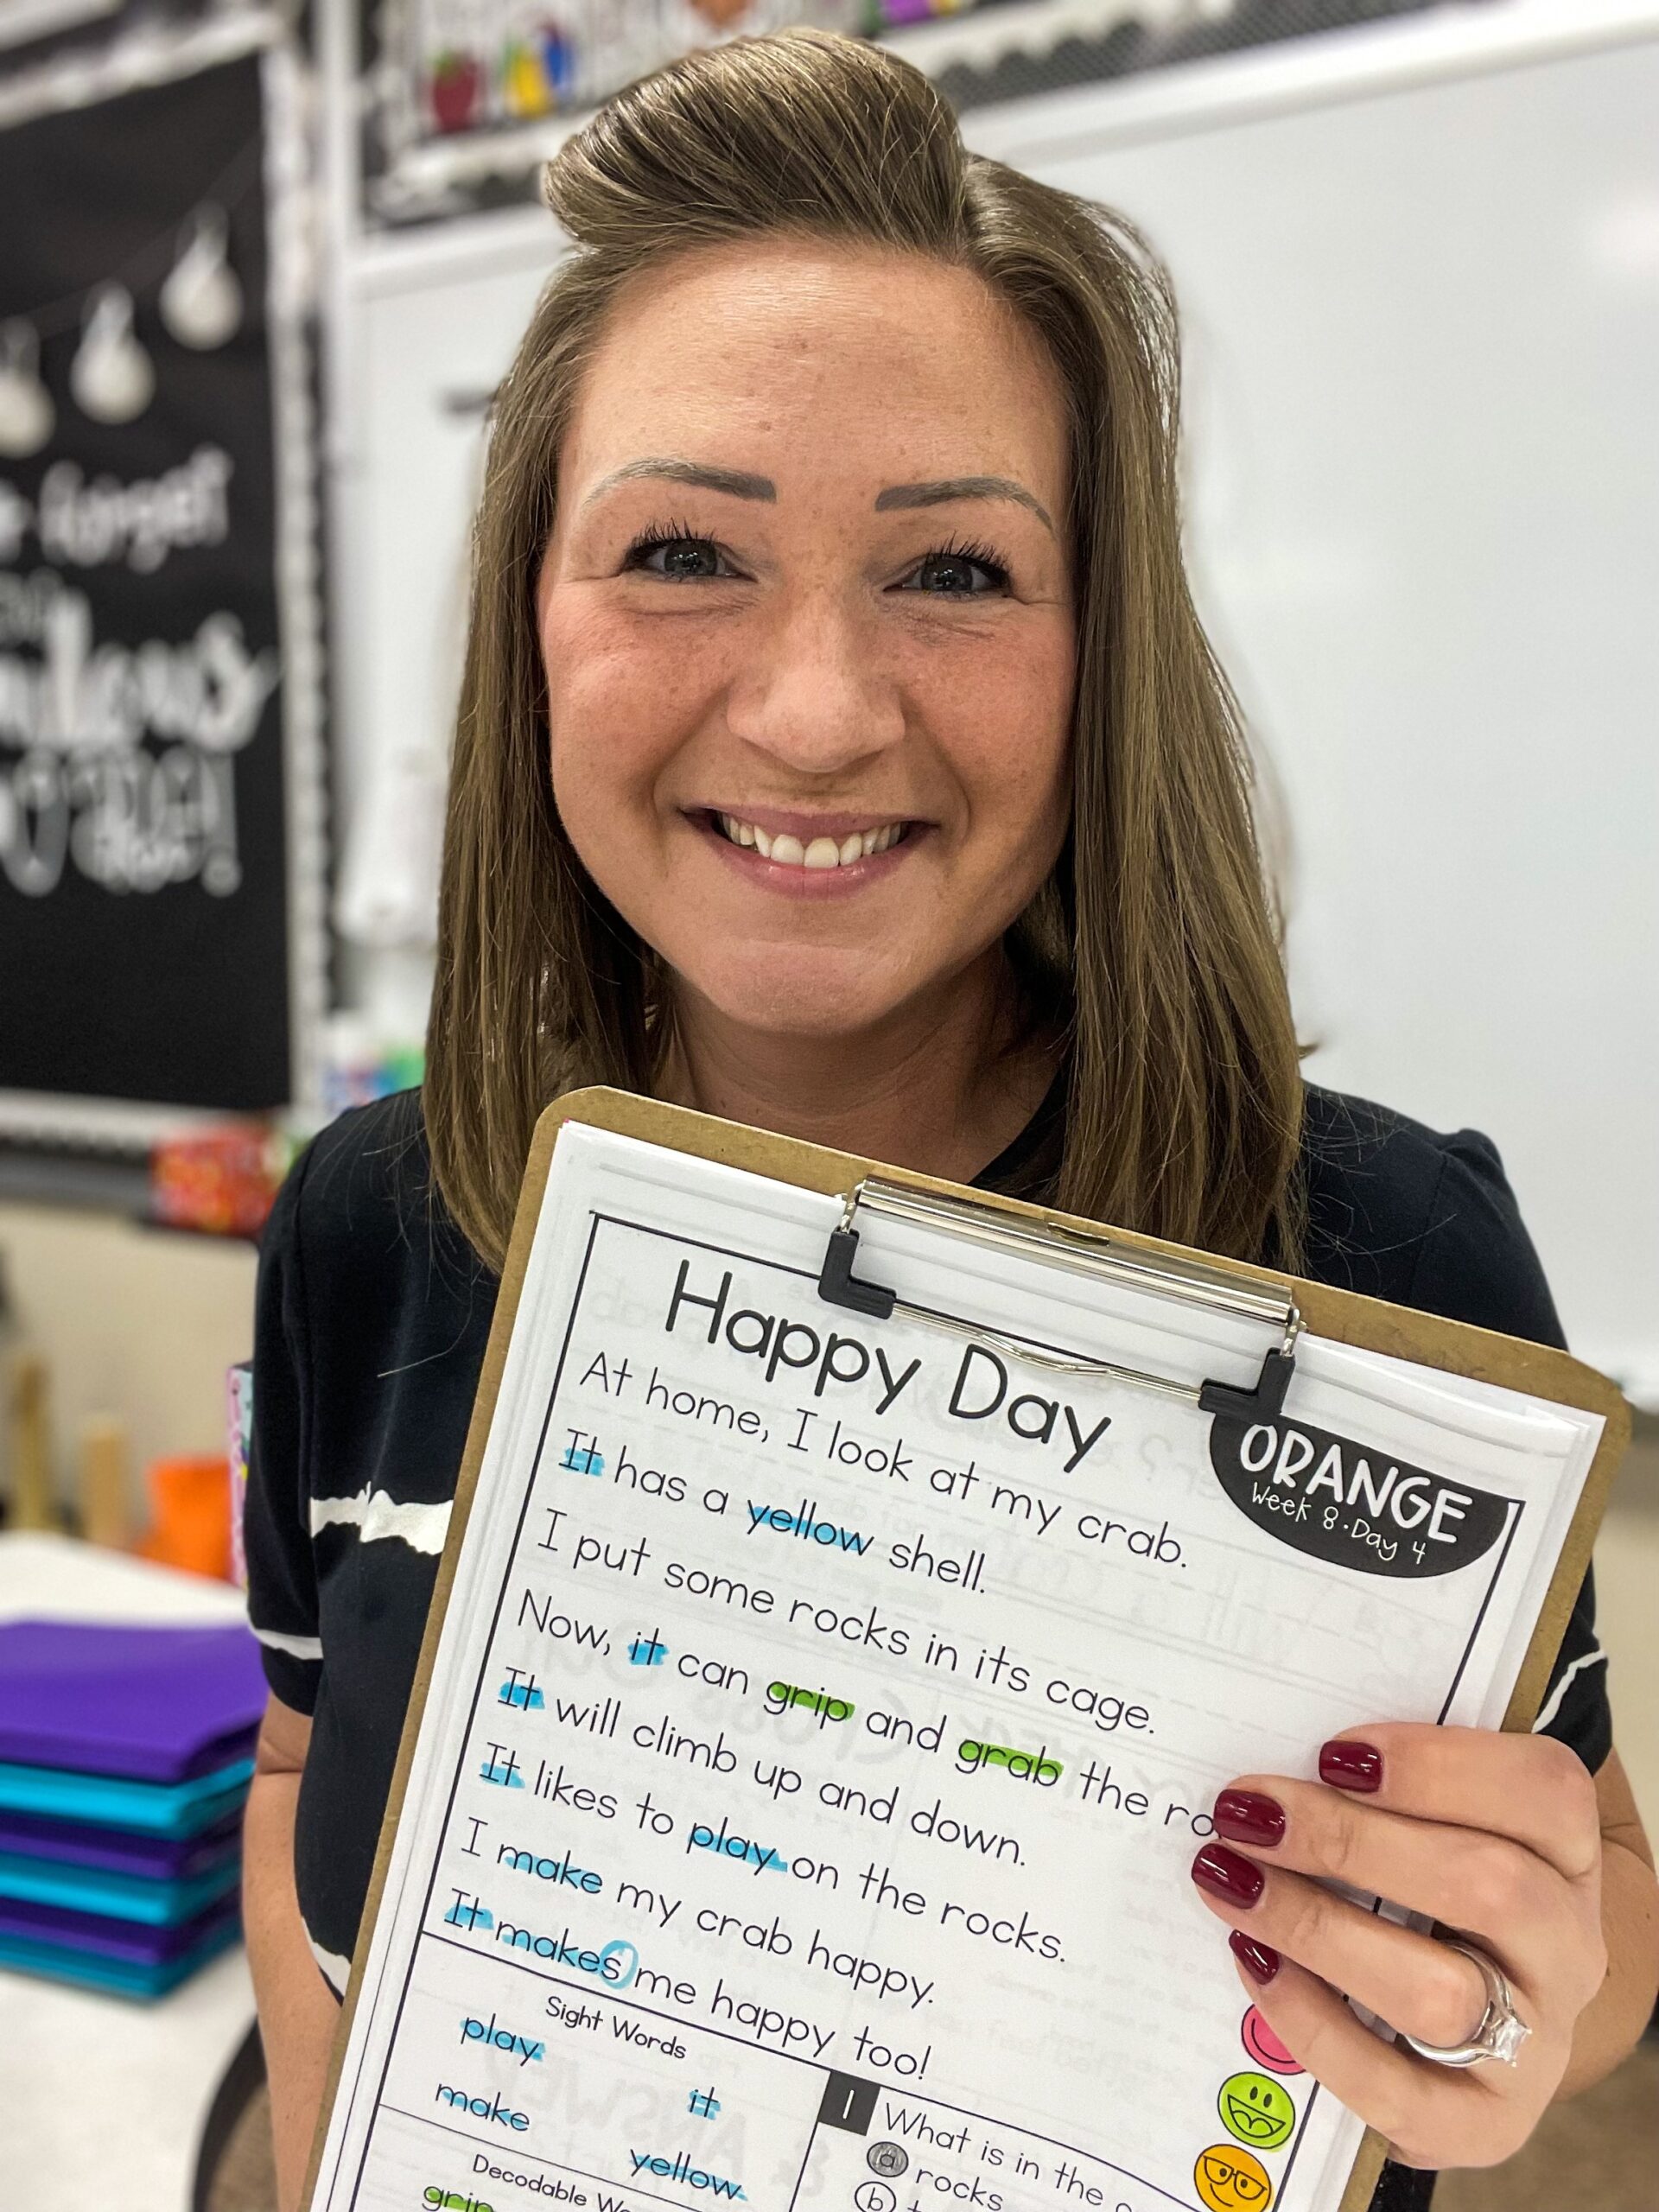 forget
Happy Day
ORANGE
Week 8 · Day 4
At home, I look at my crab.
It has a yellow shell.
I put some rocks in its cage.
Now, it can grip and grab the
It will climb up and down.
It likes to play on the rocks.
I make my crab happy.
It makes me happy too!
Sight Words
play
it
make
yellow
Decodable
grip
1 What is in the
a rocks
b